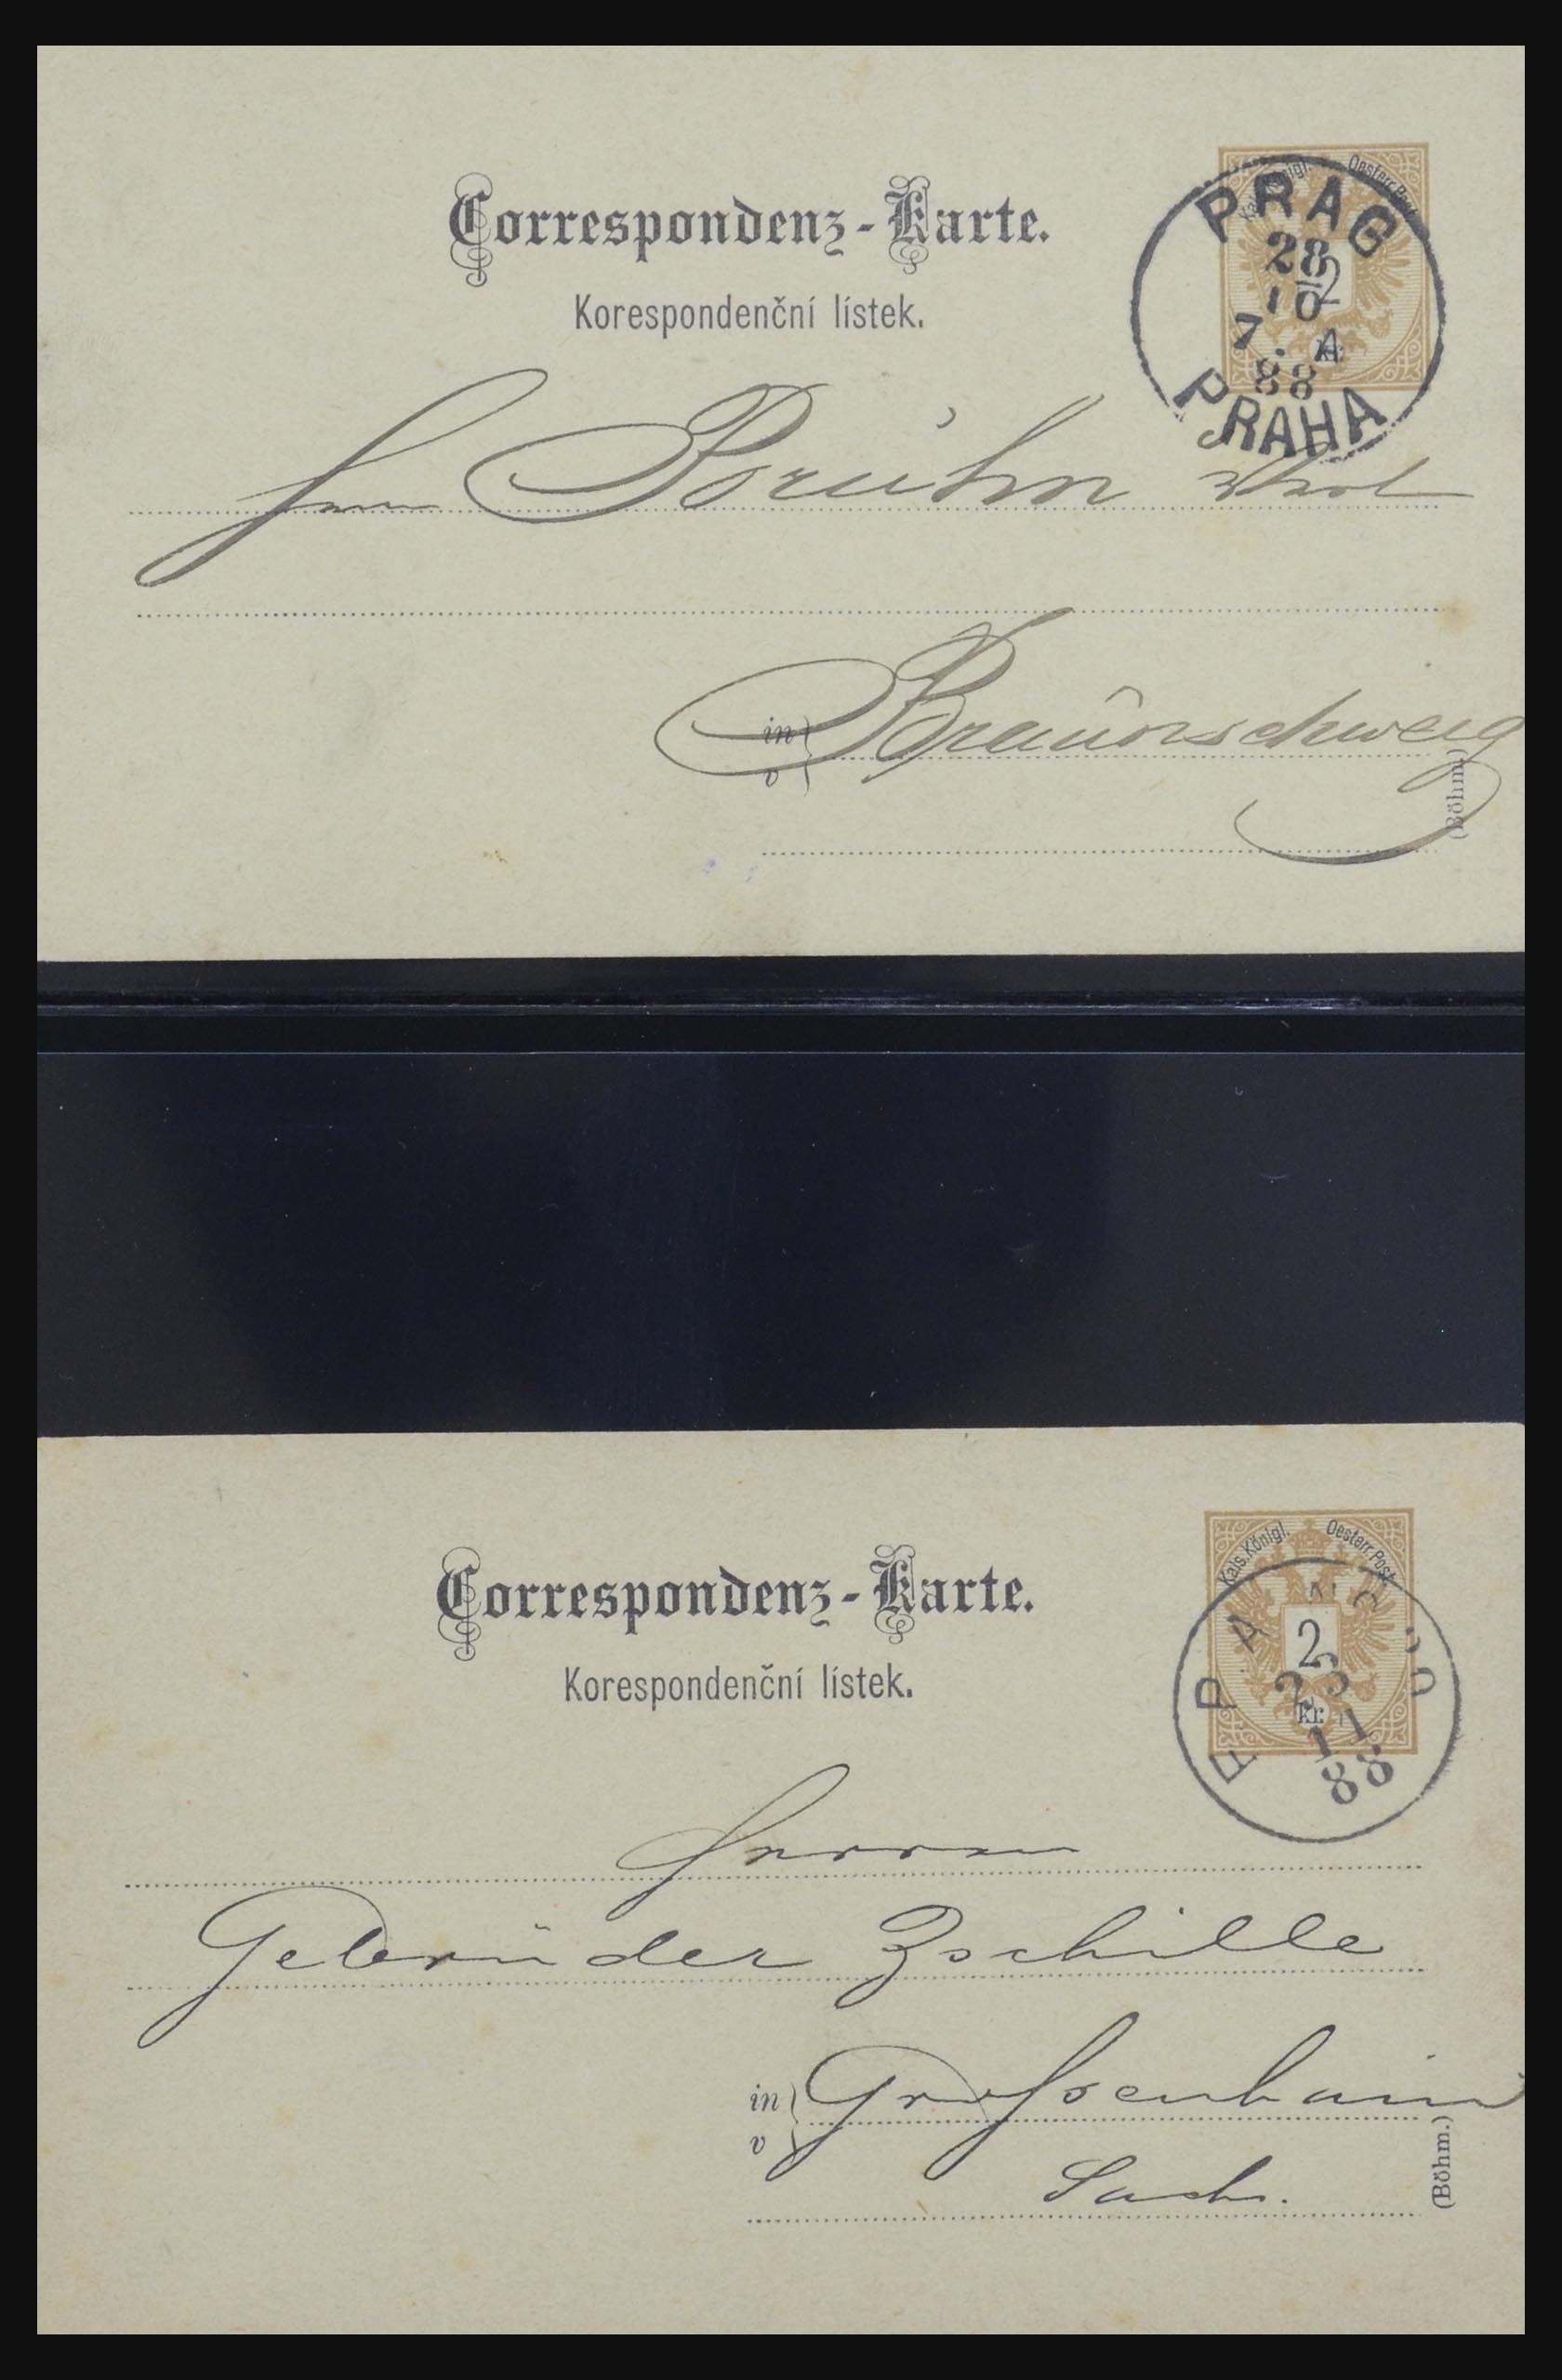 Correspondenz-Karte.
Korespondenční lístek.
Kais. Königl. Oesterr. Post
2
PRAG
28
10
7. A
88
PRAHA
Braunschweig
in
v
(Böhm.)
Correspondenz-Karte.
Korespondenční lístek.
Kais. Königl. Oesterr. Post
2
kr.
23
11
88
Herren
Gebrüder Zschille
in Grossenhain
v
Sachs.
(Böhm.)